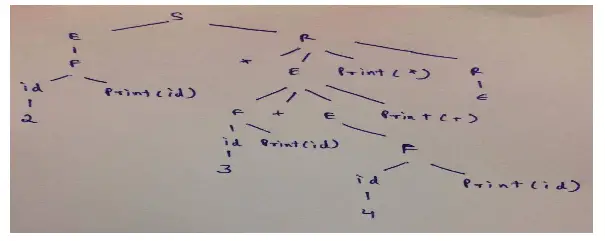 S
E R
F * E Print(*) R
id Print(id) ε
2 F + E Print(+)
id Print(id) F
3 id Print(id)
4